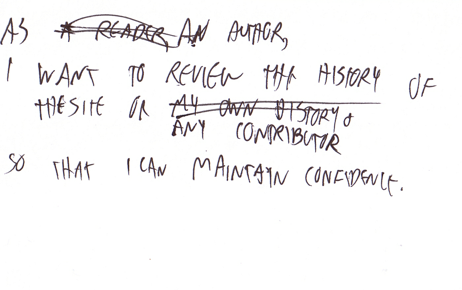 AS A READER, AN AUTHOR,
I WANT TO REVIEW THE HISTORY OF
THE SITE OR MY OWN HISTORY
ANY CONTRIBUTOR
SO THAT I CAN MAINTAIN CONFIDENCE.